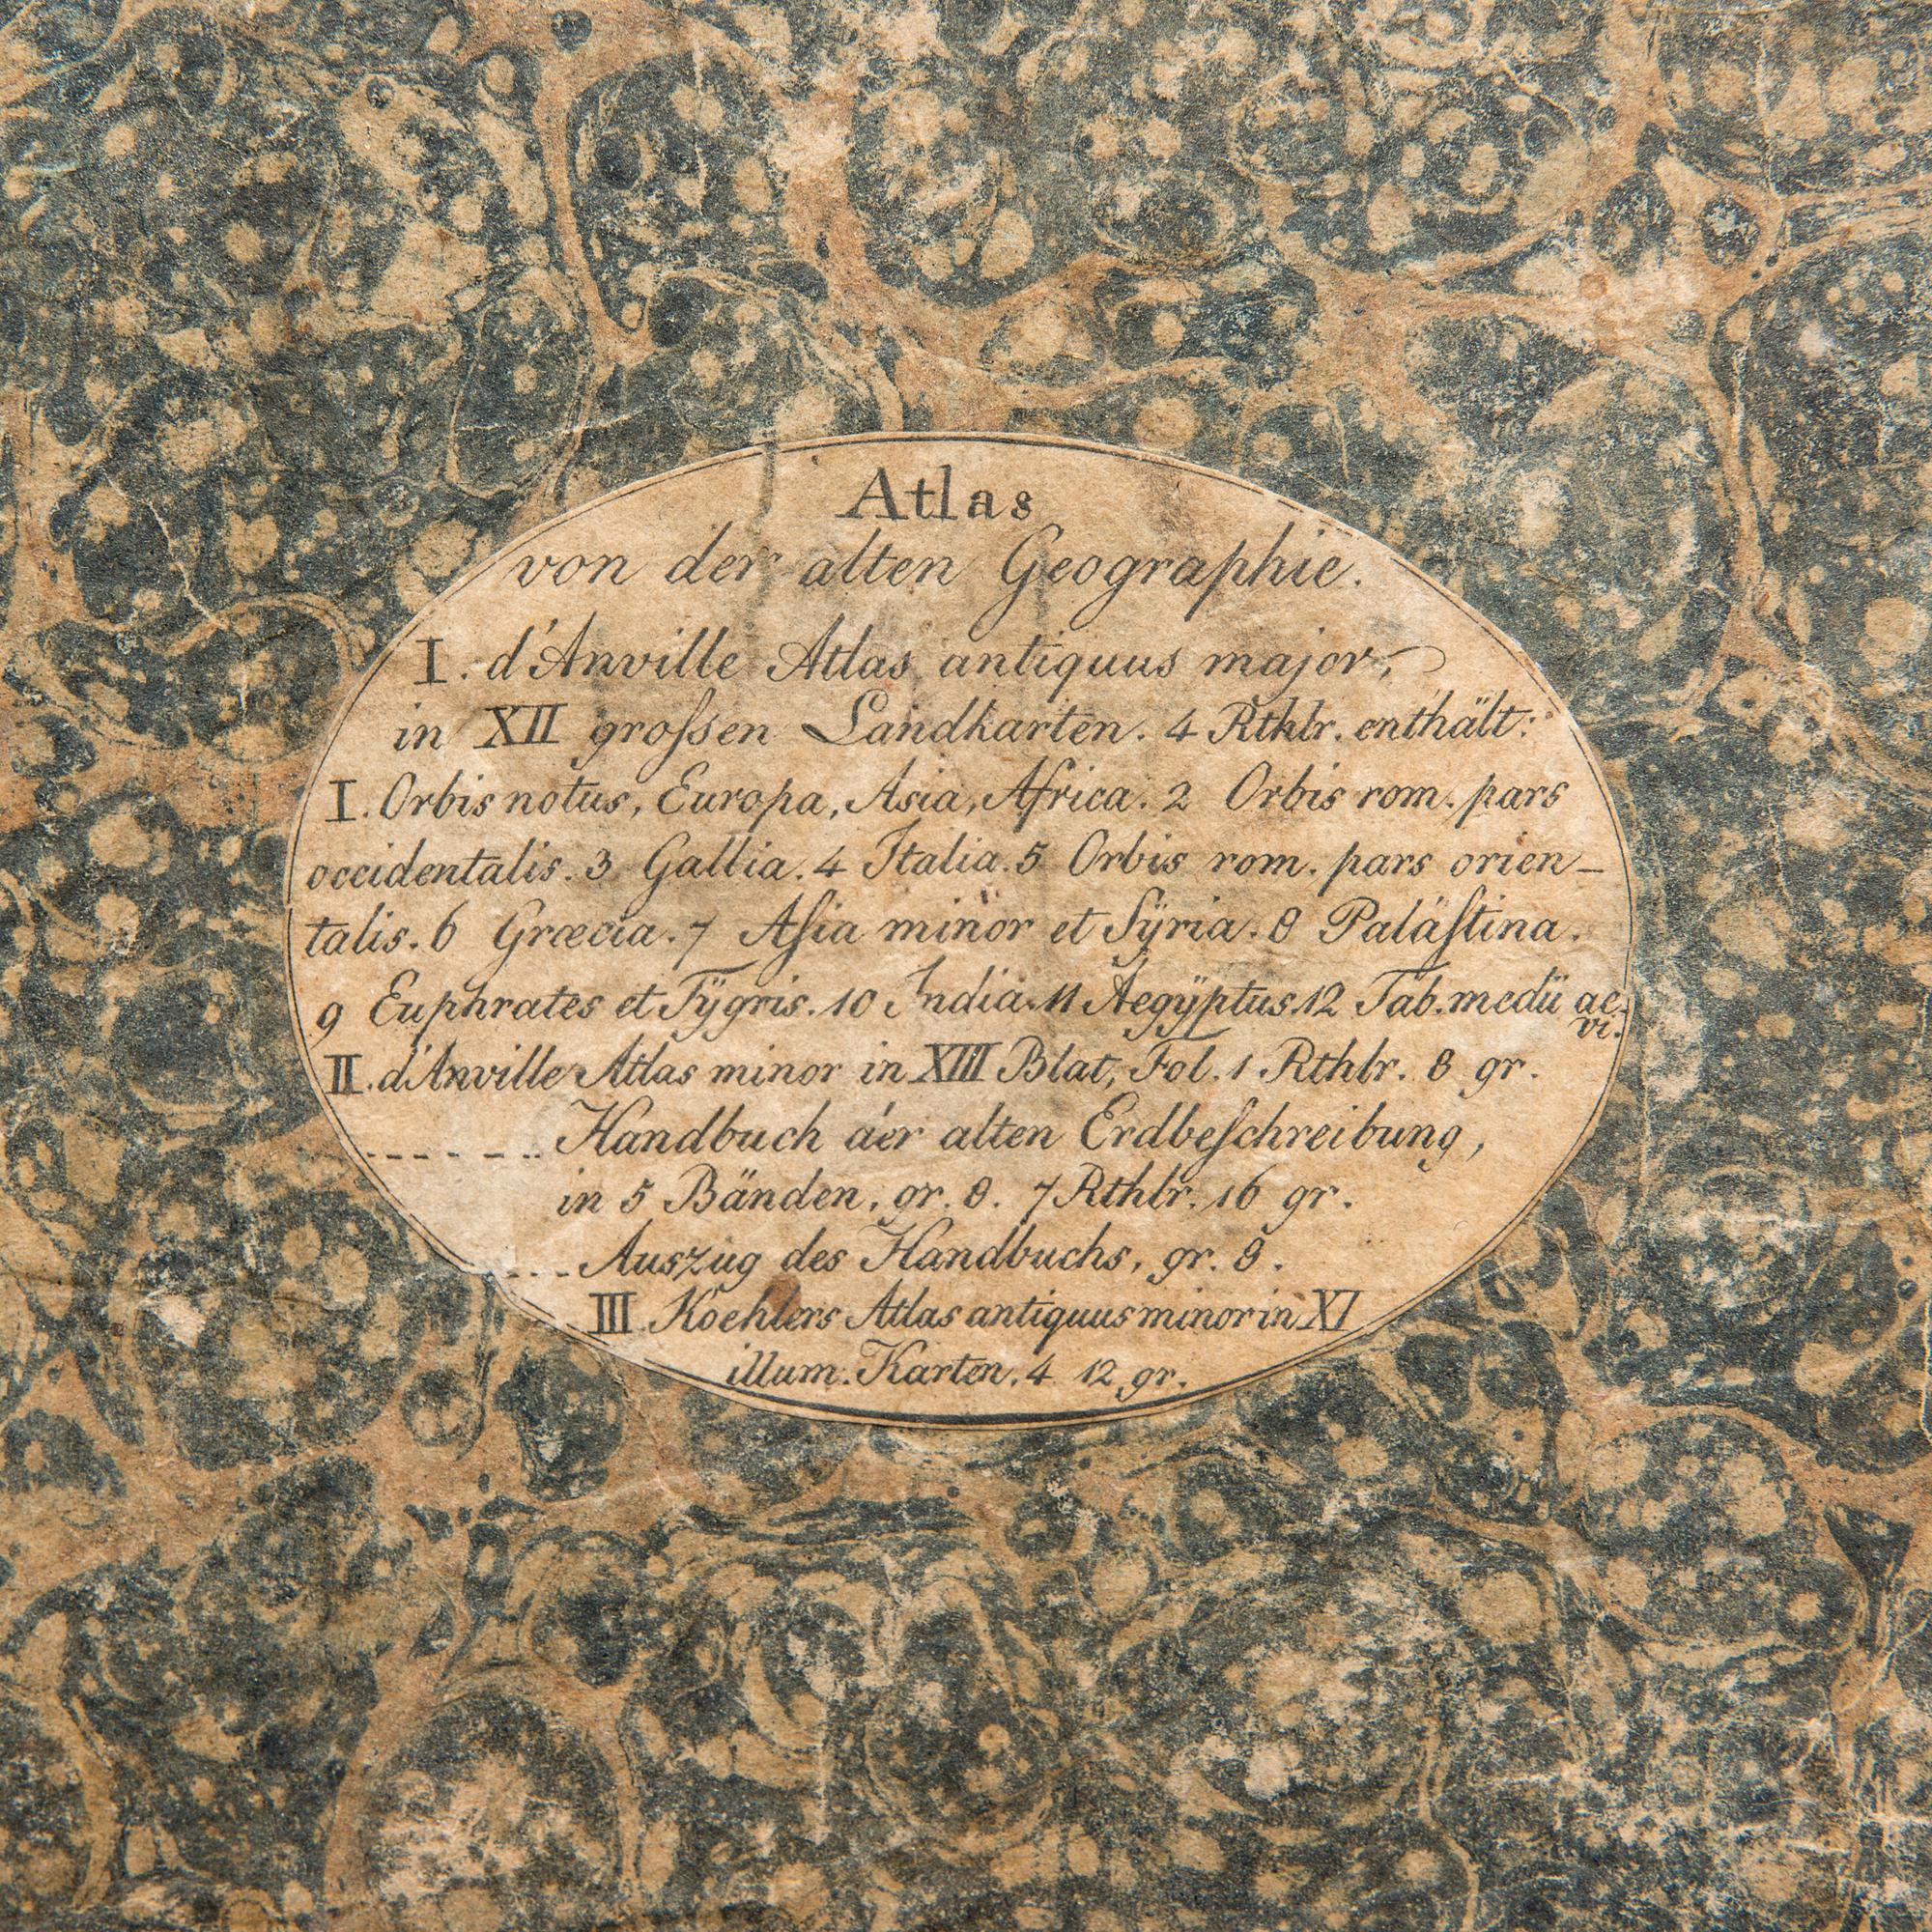 Atlas
von der alten Geographie.
I. d'Anville Atlas antiquus major,
in XII groſsen Landkarten. 4 Rthlr. enthält:
I. Orbis notus, Europa, Asia, Africa. 2 Orbis rom. pars
occidentalis. 3 Gallia. 4 Italia. 5 Orbis rom. pars orien-
talis. 6 Græcia. 7 Aſia minor et Sÿria. 8 Paläſtina.
9 Euphrates et Tÿgris. 10 India. 11 Aegÿptus. 12 Tab. medii ae-
vi.
II. d'Anville Atlas minor in XIII Blat, Fol. 1 Rthlr. 8 gr.
------ Handbuch der alten Erdbeſchreibung,
in 5 Bänden, gr. 8. 7 Rthlr. 16 gr.
... Auszug des Handbuchs, gr. 8.
III Koehlers Atlas antiquus minor in XI
illum. Karten. 4 12 gr.